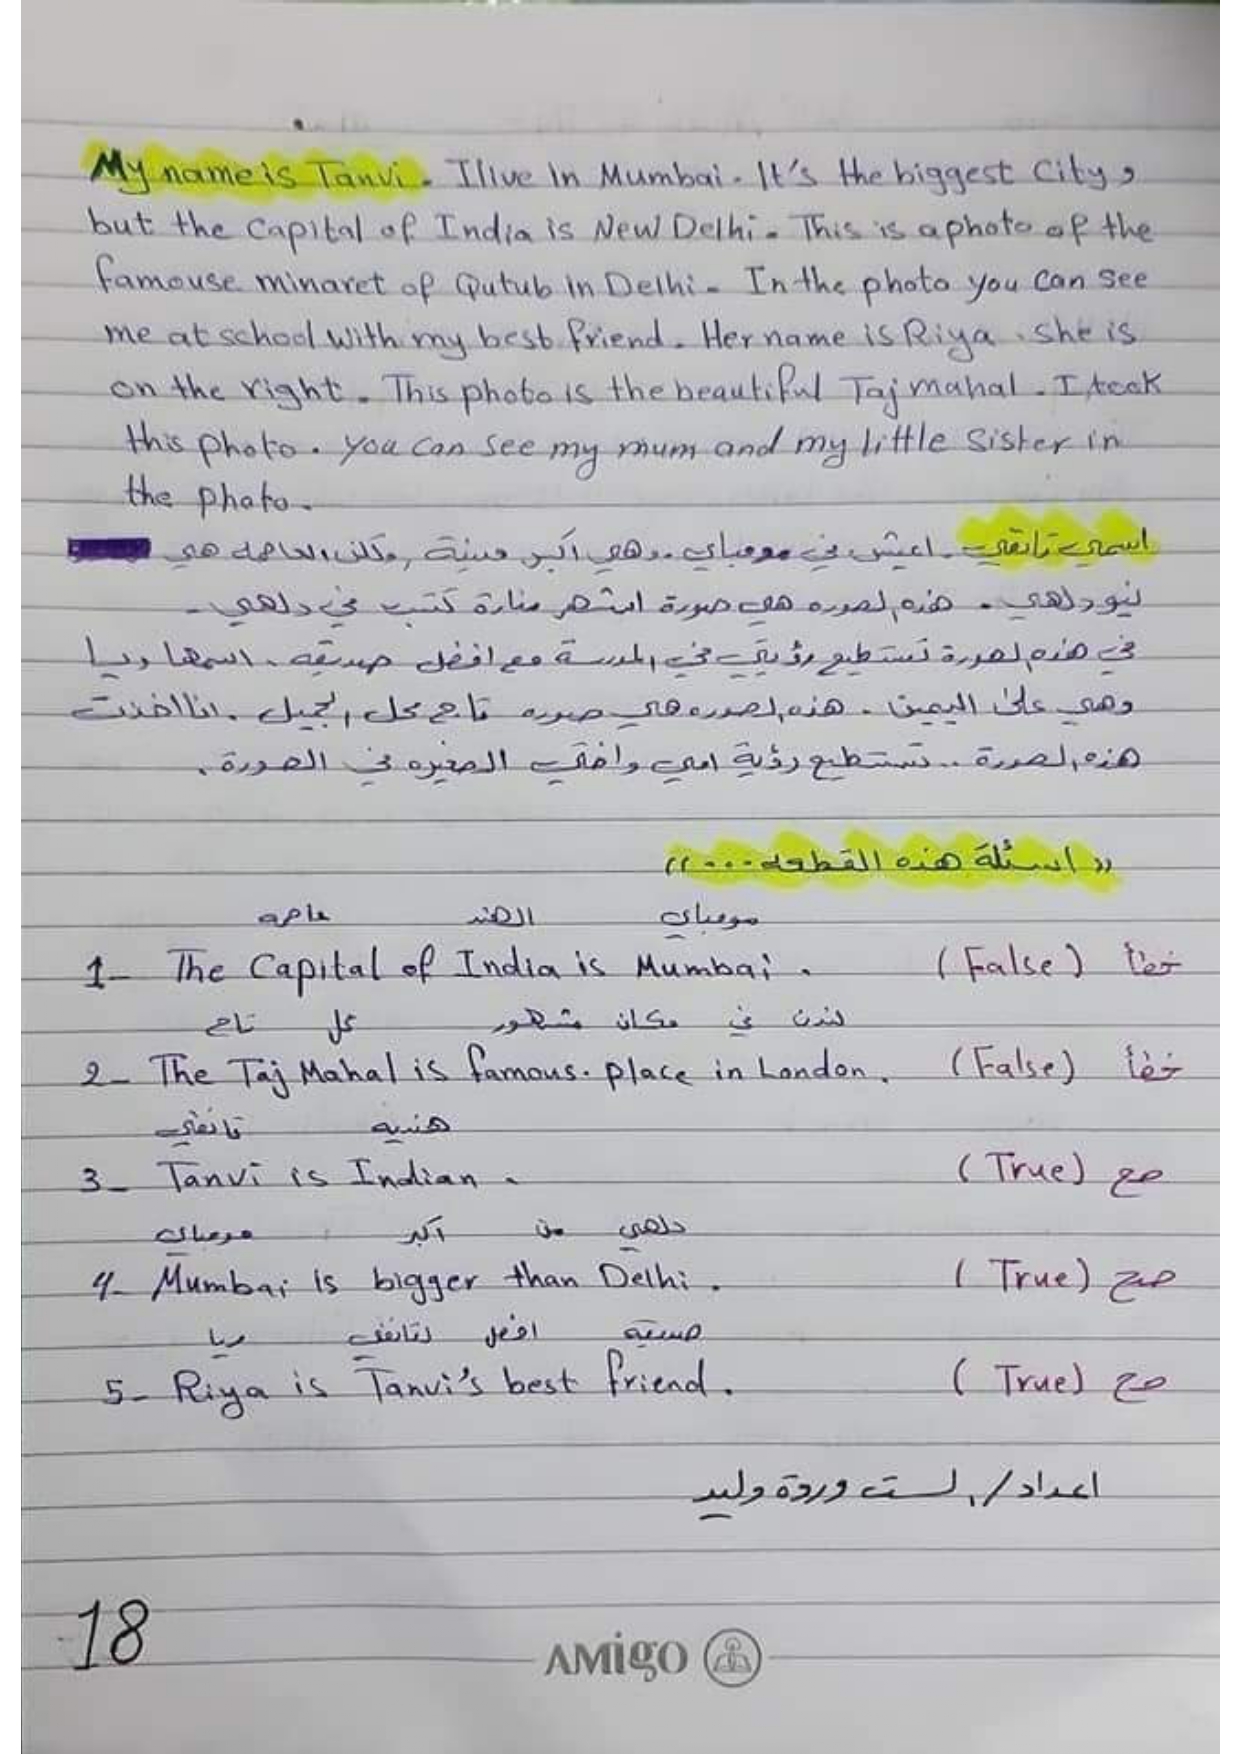 My name is Tanvi. I live In Mumbai. It's the biggest City,
but the Capital of India is New Delhi. This is a photo of the
famouse minaret of Qutub in Delhi. In the photo you can see
me at school with my best friend. Her name is Riya. she is
on the right. This photo is the beautiful Taj mahal. I took
this photo. you can see my mum and my little sister in
the photo.
اسمي تانفي. اعيش في مومباي. وهي أكبر مدينة, ولكن العاصمه هي
نيودلهي. هذه الصوره هي صورة اشهر منارة كتب في دلهي.
في هذه الصورة تستطيع رؤيتي في المدرسة مع افضل صديقه. اسمها ريا
وهي على اليمين. هذه الصوره هي صوره تاج محل الجميل. انا اخذت
هذه الصورة.. تستطيع رؤية امي واختي الصغيره في الصورة.
((اسئلة هذه القطعه...))
عاصمه الهند مومباي
1- The Capital of India is Mumbai. (False) خطأ
تاج محل مشهور مكان في لندن
2- The Taj Mahal is famous. place in London. (False) خطأ
تانفي هنديه
3- Tanvi is Indian. (True) صح
مومباي أكبر من دلهي
4- Mumbai is bigger than Delhi. (True) صح
ريا لتانفي افضل صديقة
5- Riya is Tanvi's best friend. (True) صح
اعداد/الست وردة وليد
18
AMiGO